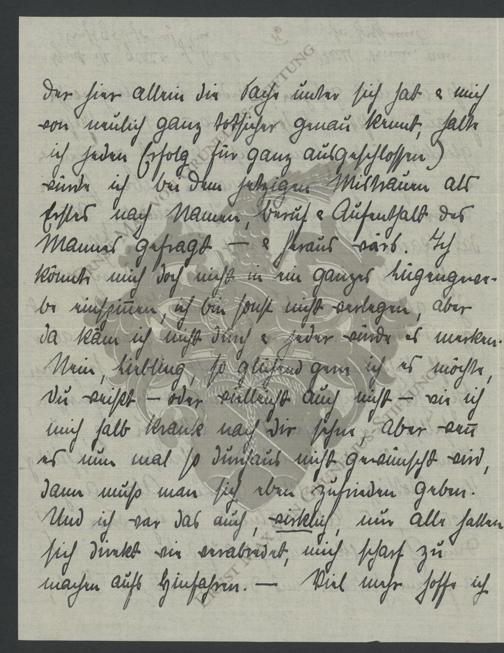 der hier allein die Sache unter sich hat & mich
von neulich ganz todsicher genau kennt, halte
ich jeden Erfolg für ganz ausgeschlossen)
würde ich bei dem jetzigen Mistrauen als
Erstes nach Namen, Beruf & Aufenthalt des
Mannes gefragt — & heraus wärs. Ich
könnte mich doch nicht in ein ganzes Lügengewe-
be einspinnen, ich bin sonst nicht verlegen, aber
da käm ich nicht durch & jeder würde es merken.
Nein, Liebling, so glühend gern ich es möchte,
Du weißt — oder vielleicht auch nicht — wie ich
mich halb krank nach dir sehne. Aber wenn
es nun mal so durchaus nicht gewünscht wird,
dann muss man sich eben zufrieden geben.
Und ich war das auch, wirklich, nur alle hatten
sich direkt wie verabredet, mich scharf zu
machen aufs Hinfahren. — Viel mehr hoffe ich